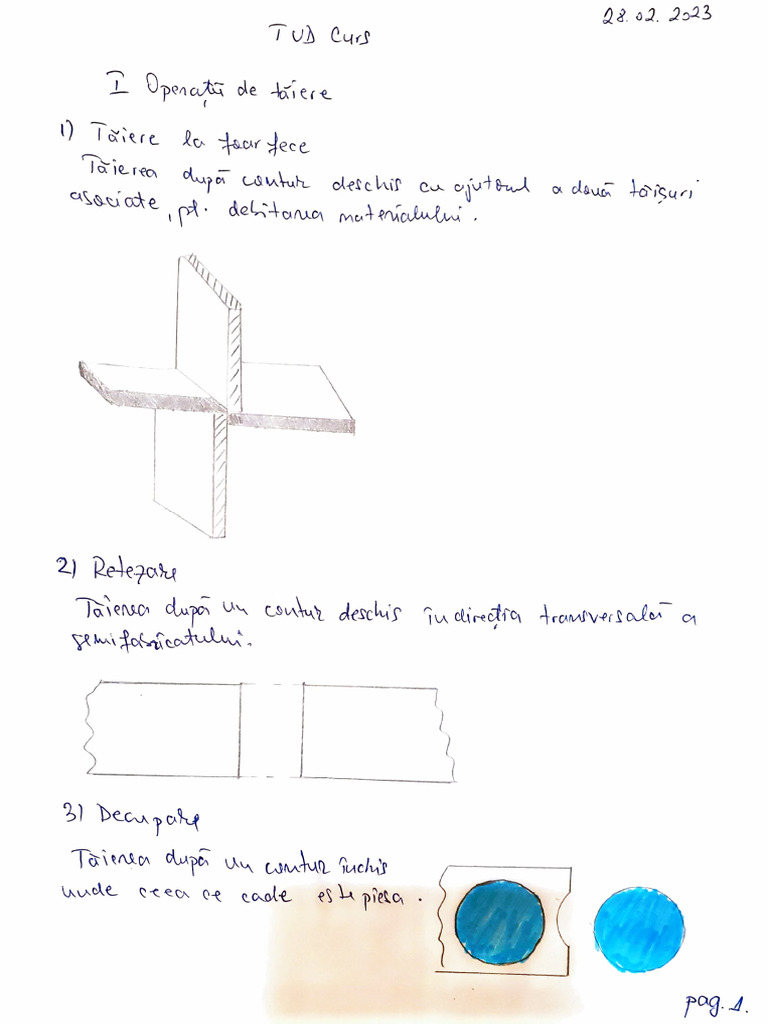 28.02.2023
TUD Curs
I Operații de tăiere
1) Tăiere la foarfece
Tăierea după contur deschis cu ajutorul a două tăișuri
asociate, pt. debitarea materialului.
2) Retezare
Tăierea după un contur deschis în direcția transversală a
semifabricatului.
3) Decupare
Tăierea după un contur închis
unde ceea ce cade este piesa.
pag. 1.